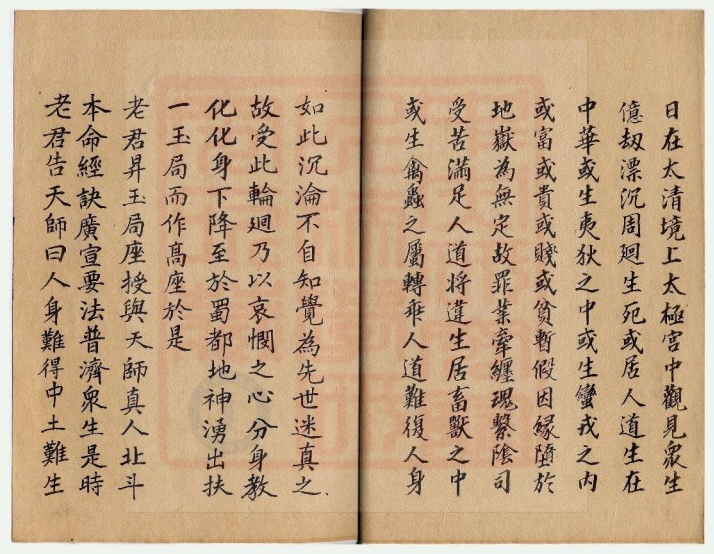 日在太清境上太極宮中觀見眾生
億劫漂沉周迴生死或居人道生在
中華或生夷狄之中或生蠻戎之內
或富或貴或賤或貧暫假因緣墮於
地獄為無定故罪業牽纏魂繫陰司
受苦滿足人道將違生居畜獸之中
或生禽蟲之屬轉乖人道難復人身
如此沉淪不自知覺為先世迷真之
故受此輪迴乃以哀憫之心分身教
化化身下降至於蜀都地神湧出扶
一玉局而作高座於是
老君昇玉局座授與天師真人北斗
本命經訣廣宣要法普濟眾生是時
老君告天師曰人身難得中土難生